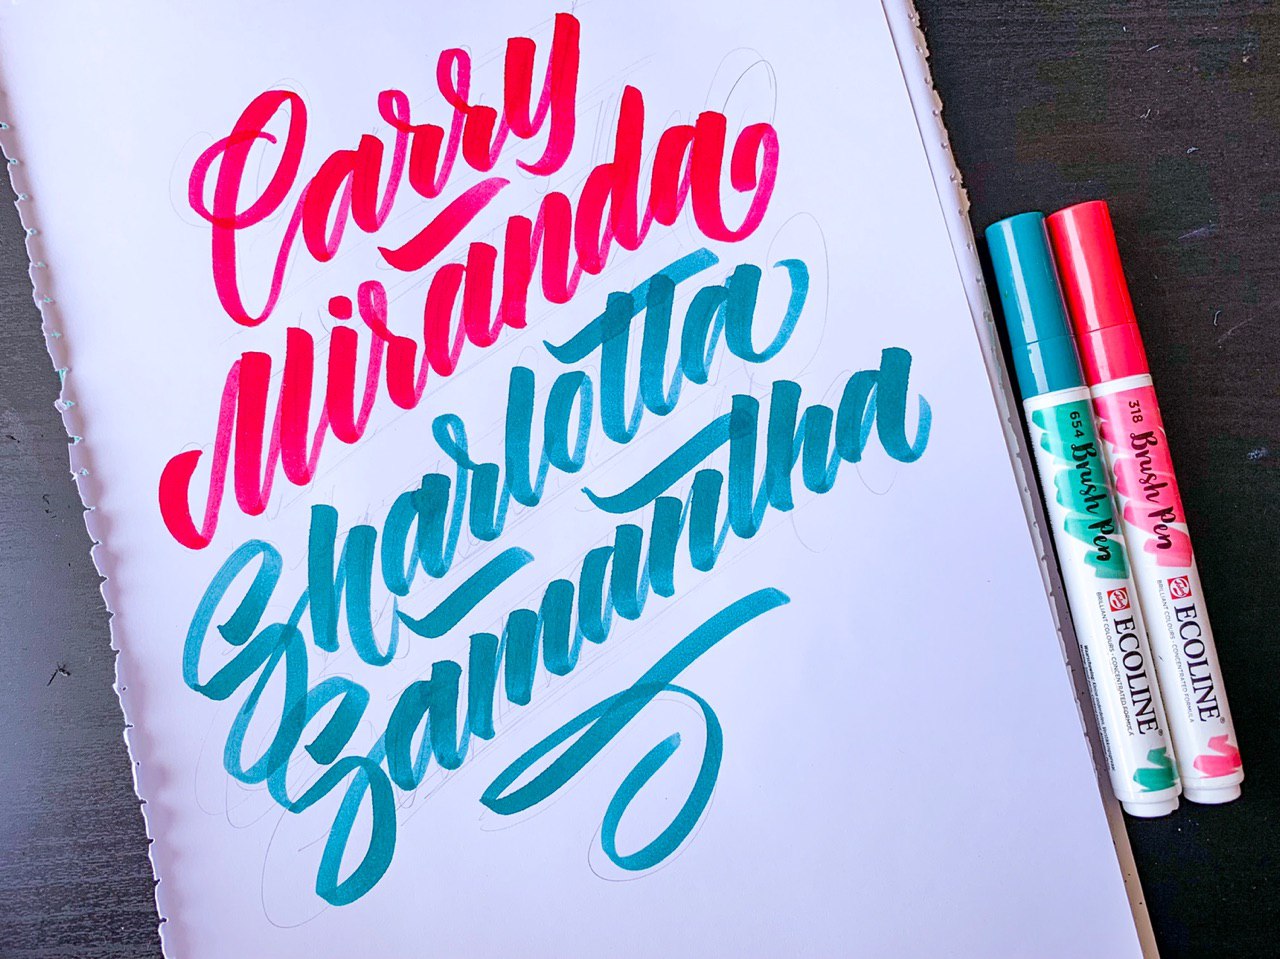 Carry
Miranda
Sharlotta
Samantha
654 Brush Pen
BRILLIANT COLOURS · CONCENTRATED FORMULA
ECOLINE
318 Brush Pen
BRILLIANT COLOURS · CONCENTRATED FORMULA
ECOLINE®